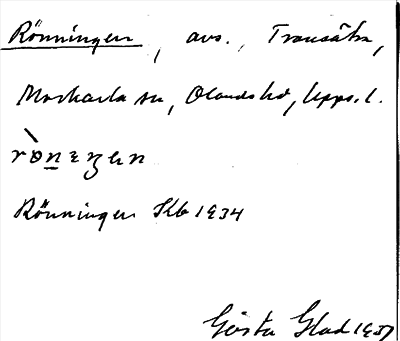 Rönningen, avs., Transätra,
Morkarla sn, Olands hd, Upps. l.
rò̀nεŋεn
Rönningen Kb 1934
Gösta Glad 1937